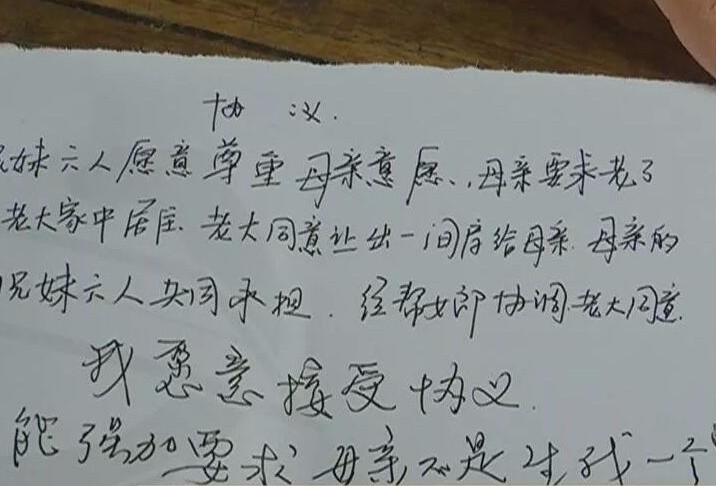 协 议.
兄妹六人愿意尊重母亲意愿,母亲要求老了
老大家中居住.老大同意让出一间房给母亲.母亲的
兄妹六人共同承担.经帮女郎协调.老大同意
我愿意接受协义.
能强加要求母亲不是生我一个